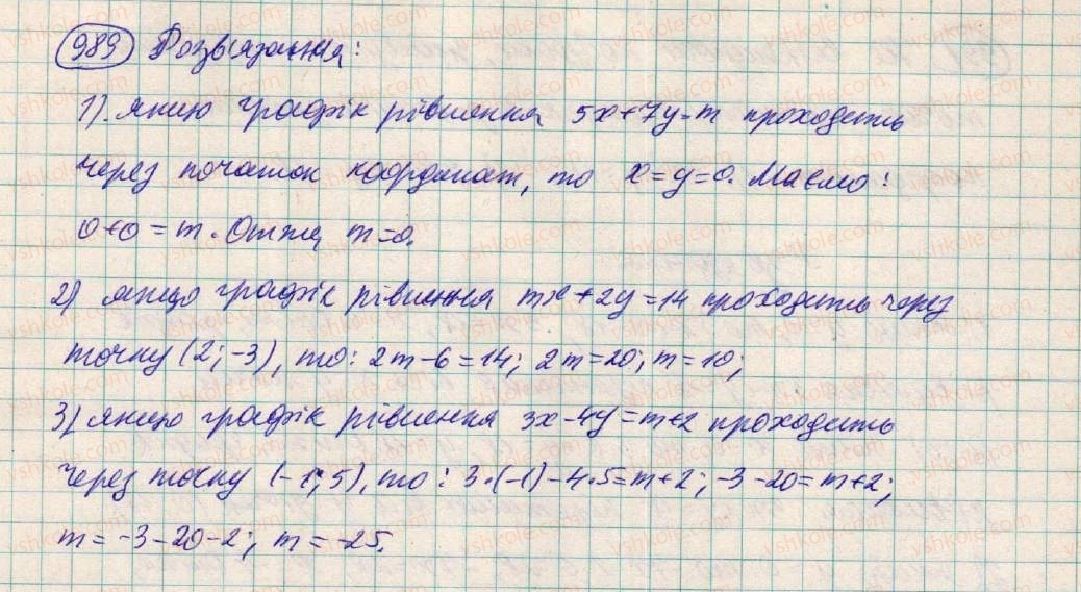 989 Розв'язання:
1). якщо графік рівняння 5x+7y=m проходить
через початок координат, то x=y=0. Маємо:
0+0=m. Отже, m=0.
2) якщо графік рівняння mx+2y=14 проходить через
точку (2;-3), то: 2m-6=14; 2m=20; m=10;
3) якщо графік рівняння 3x-4y=m+2 проходить
через точку (-1;5), то: 3·(-1)-4·5=m+2; -3-20=m+2;
m=-3-20-2; m=-25.